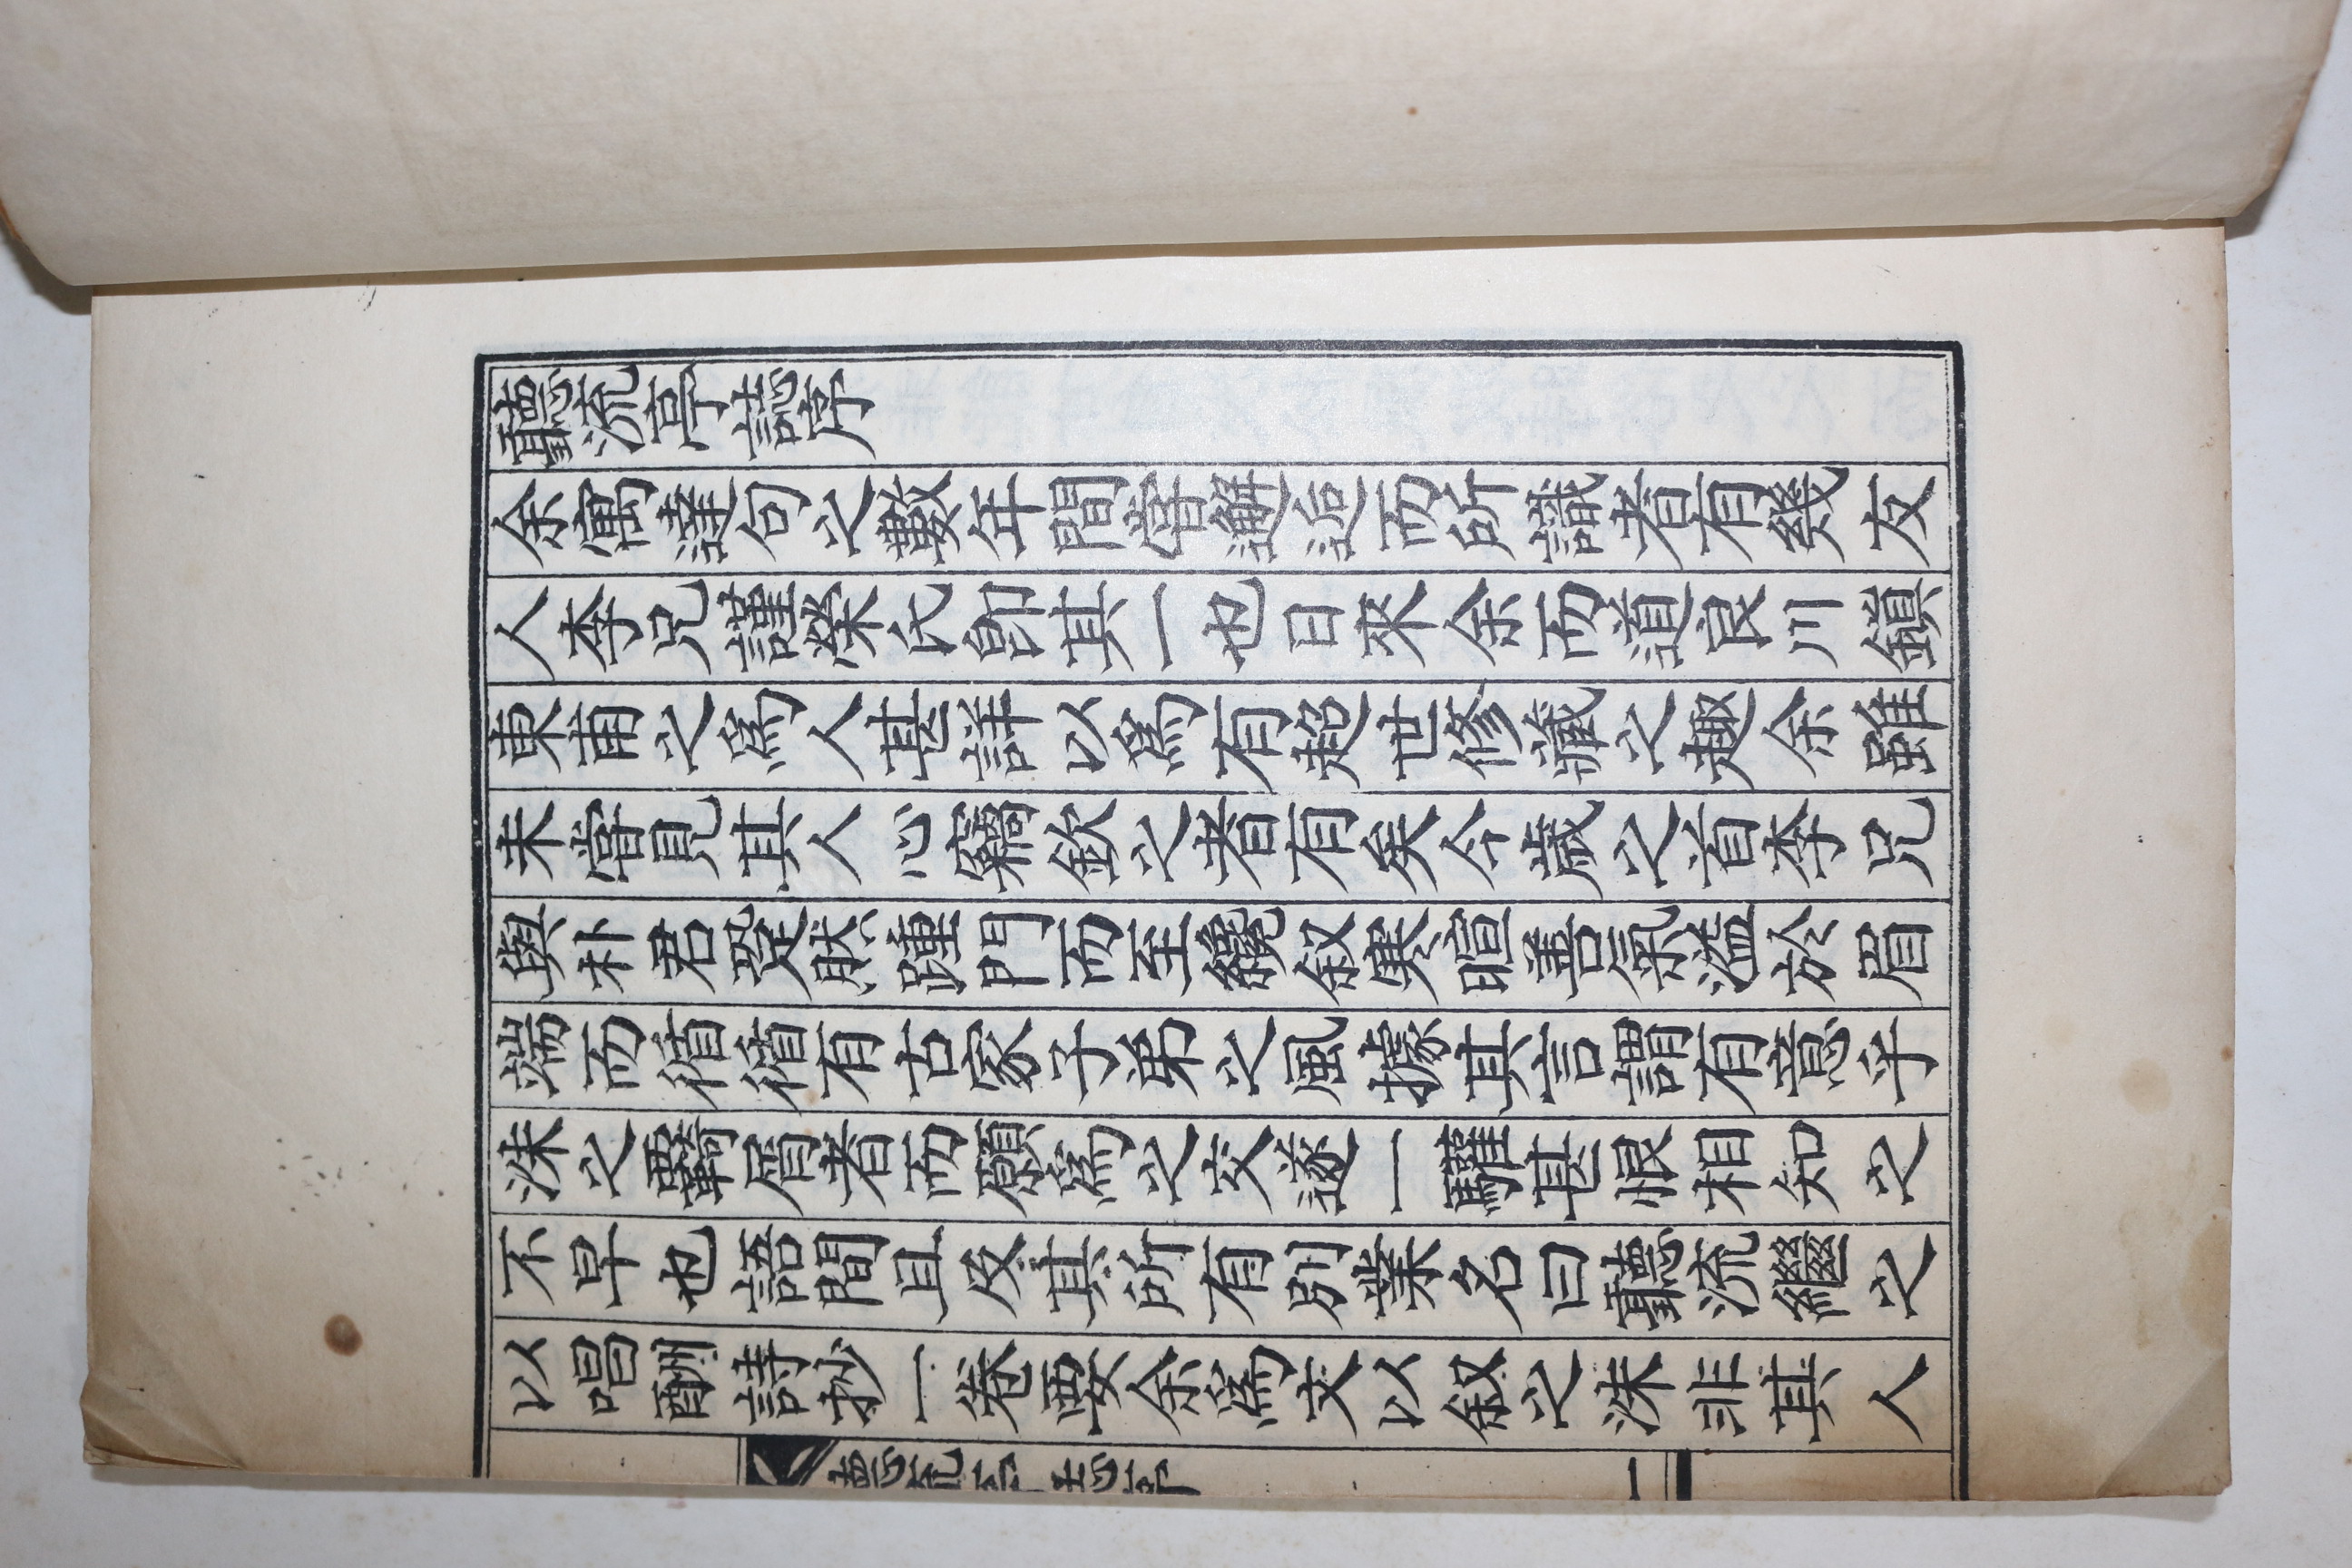 聽流亭誌序
余寓達句之數年間嘗邂逅而所識者有幾友
人李兄謹燦氏卽其一也日來余而道良川鎖
東甫之爲人甚詳以爲有超世修藏之趣余雖
未嘗見其人心竊欽之者有矣今歲之首李兄
與朴君跫然踵門而至纔敍寒暄喜氣溢於眉
端而偆偆有古家子弟之風據其言謂有意乎
洙之羈屑者而願爲之交遂一驩甚恨相知之
不早也語間且及其所有別業名曰聽流繼之
以唱酬詩抄一卷要余爲文以敍之洙非其人
聽流亭誌序 一